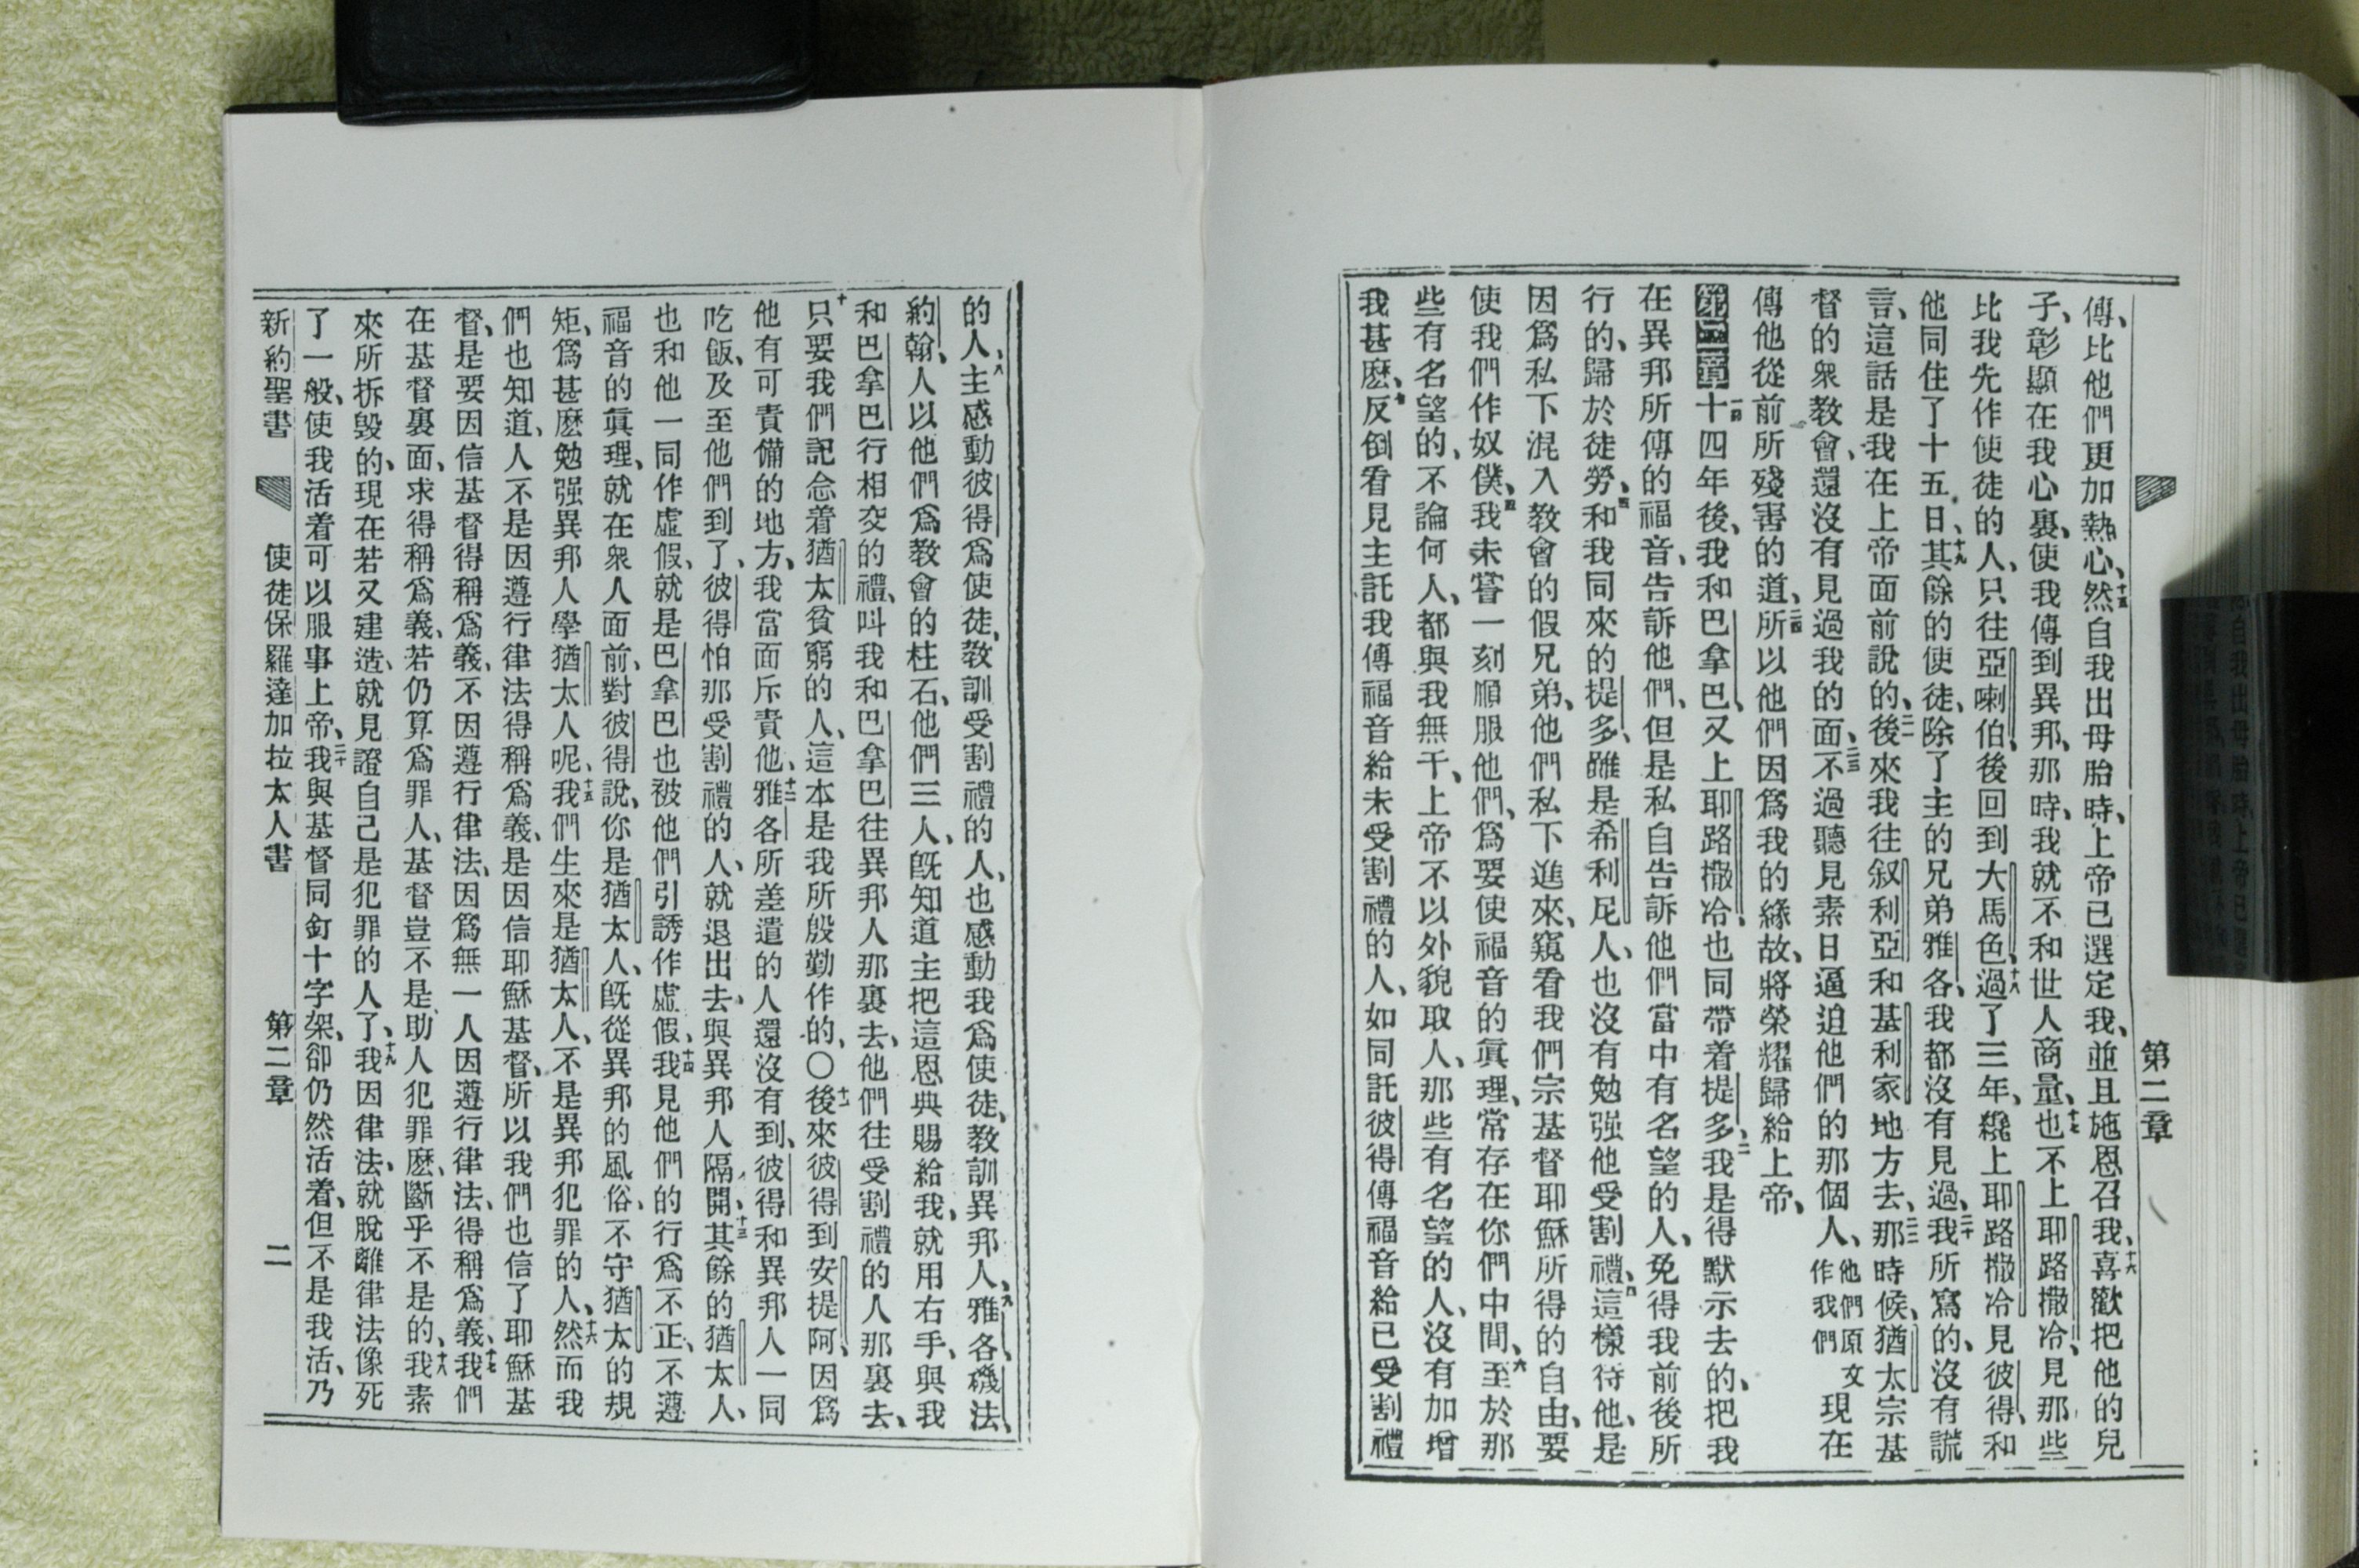 第二章
傳、比他們更加熱心、十五然自我出母胎時、上帝已選定我、並且施恩召我、十六喜歡把他的兒
子、彰顯在我心裏、使我傳到異邦、那時、我就不和世人商量、十七也不上耶路撒冷、見那些
比我先作使徒的人、只往亞喇伯、後回到大馬色、十八過了三年、纔上耶路撒冷見彼得、和
他同住了十五日、十九其餘的使徒、除了主的兄弟雅各、我都沒有見過、二十我所寫的、沒有謊
言、這話是我在上帝面前說的、二一後來我往叙利亞和基利家地方去、二二那時候、猶太宗基
督的衆教會、還沒有見過我的面、二三不過聽見素日逼迫他們的那個人、他們原文作我們現在
傳他從前所殘害的道、二四所以他們因爲我的緣故、將榮耀歸給上帝、
第二章一十四年後、我和巴拿巴、又上耶路撒冷、也同帶着提多、二我是得默示去的、把我
在異邦所傳的福音、告訴他們、但是私自告訴他們當中有名望的人、免得我前後所
行的、歸於徒勞、三和我同來的提多、雖是希利尼人、也沒有勉强他受割禮、四這樣待他、是
因爲私下混入教會的假兄弟、他們私下進來、窺看我們宗基督耶穌所得的自由、要
使我們作奴僕、五我未嘗一刻順服他們、爲要使福音的眞理、常存在你們中間、六至於那
些有名望的、不論何人、都與我無干、上帝不以外貌取人、那些有名望的人、沒有加增
我甚麽、七反倒看見主託我傳福音給未受割禮的人、如同託彼得傳福音給已受割禮
的人、八主感動彼得爲使徒、教訓受割禮的人、也感動我爲使徒、教訓異邦人、九雅各、磯法、
約翰、人以他們爲教會的柱石、他們三人、旣知道主把這恩典賜給我、就用右手、與我
和巴拿巴行相交的禮、叫我和巴拿巴往異邦人那裏去、他們往受割禮的人那裏去、
十只要我們記念着猶太貧窮的人、這本是我所殷勤作的、○十一後來彼得到安提阿、因爲
他有可責備的地方、我當面斥責他、十二雅各所差遣的人還沒有到、彼得和異邦人一同
吃飯、及至他們到了、彼得怕那受割禮的人、就退出去、與異邦人隔開、十三其餘的猶太人、
也和他一同作虛假、就是巴拿巴也被他們引誘作虛假、十四我見他們的行爲不正、不遵
福音的眞理、就在衆人面前、對彼得說、你是猶太人、旣從異邦的風俗、不守猶太的規
矩、爲甚麽勉强異邦人學猶太人呢、十五我們生來是猶太人、不是異邦犯罪的人、十六然而我
們也知道、人不是因遵行律法得稱爲義、是因信耶穌基督、所以我們也信了耶穌基
督、是要因信基督得稱爲義、不因遵行律法、因爲無一人因遵行律法、得稱爲義、十七我們
在基督裏面、求得稱爲義、若仍算爲罪人、基督豈不是助人犯罪麽、斷乎不是的、十八我素
來所拆毀的、現在若又建造、就見證自己是犯罪的人了、十九我因律法、就脫離律法像死
了一般、使我活着可以服事上帝、二十我與基督同釘十字架、卻仍然活着、但不是我活、乃
新約聖書 使徒保羅達加拉太人書 第二章 二